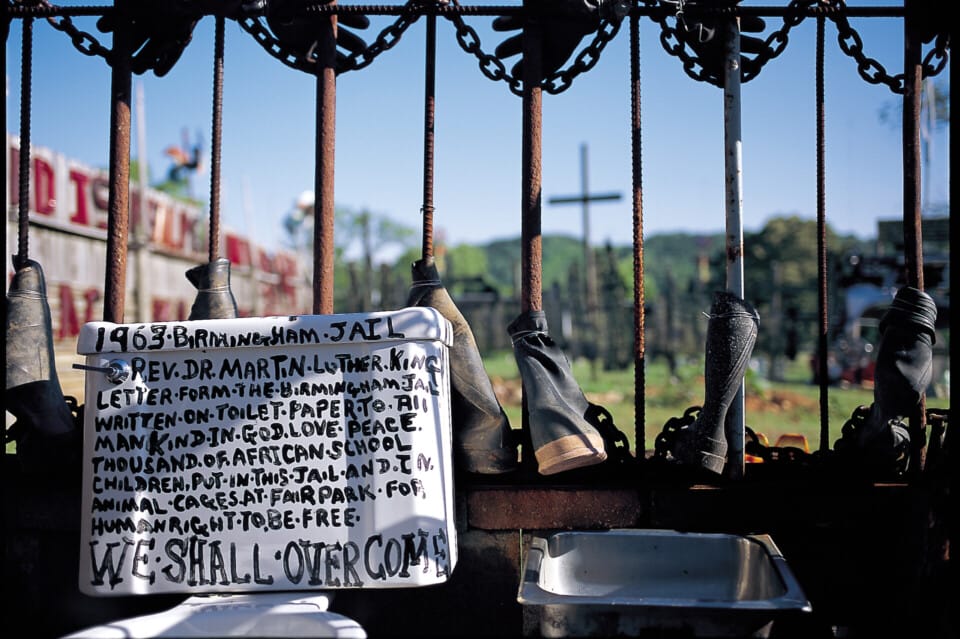 1963·BIRMINGHAM·JAIL
REV. DR. MARTIN·LUTHER·KING
LETTER·FORM·THE·BIRMINGHAM·JAIL
WRITTEN·ON·TOILET·PAPER·TO·All
MAN KIND·IN·GOD. LOVE·PEACE.
THOUSAND·OF·AFRICAN·SCHOOL
CHILDREN. PUT·IN·THIS·JAIL·AND·IN.
ANIMAL·CAGES·AT·FAIR PARK·FOR
HUMAN RIGHT·TO.BE·FREE·
WE·SHALL·OVERCOME